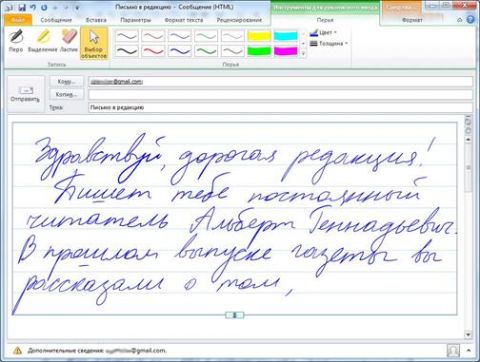 Письмо в редакцию - Сообщение (HTML)
Инструменты для рукописного ввода
Файл Сообщение Вставка Параметры Формат текста Рецензирование Перья Формат
Перо Выделение Ластик Выбор объектов
Цвет
Толщина
Запись Перья
Отправить
Кому... @gmail.com;
Копия...
Тема: Письмо в редакцию
Здравствуй, дорогая редакция!
Пишет тебе постоянный
читатель Альберт Геннадьевич.
В прошлом выпуске газеты вы
рассказали о том,
Дополнительные сведения: @gmail.com.